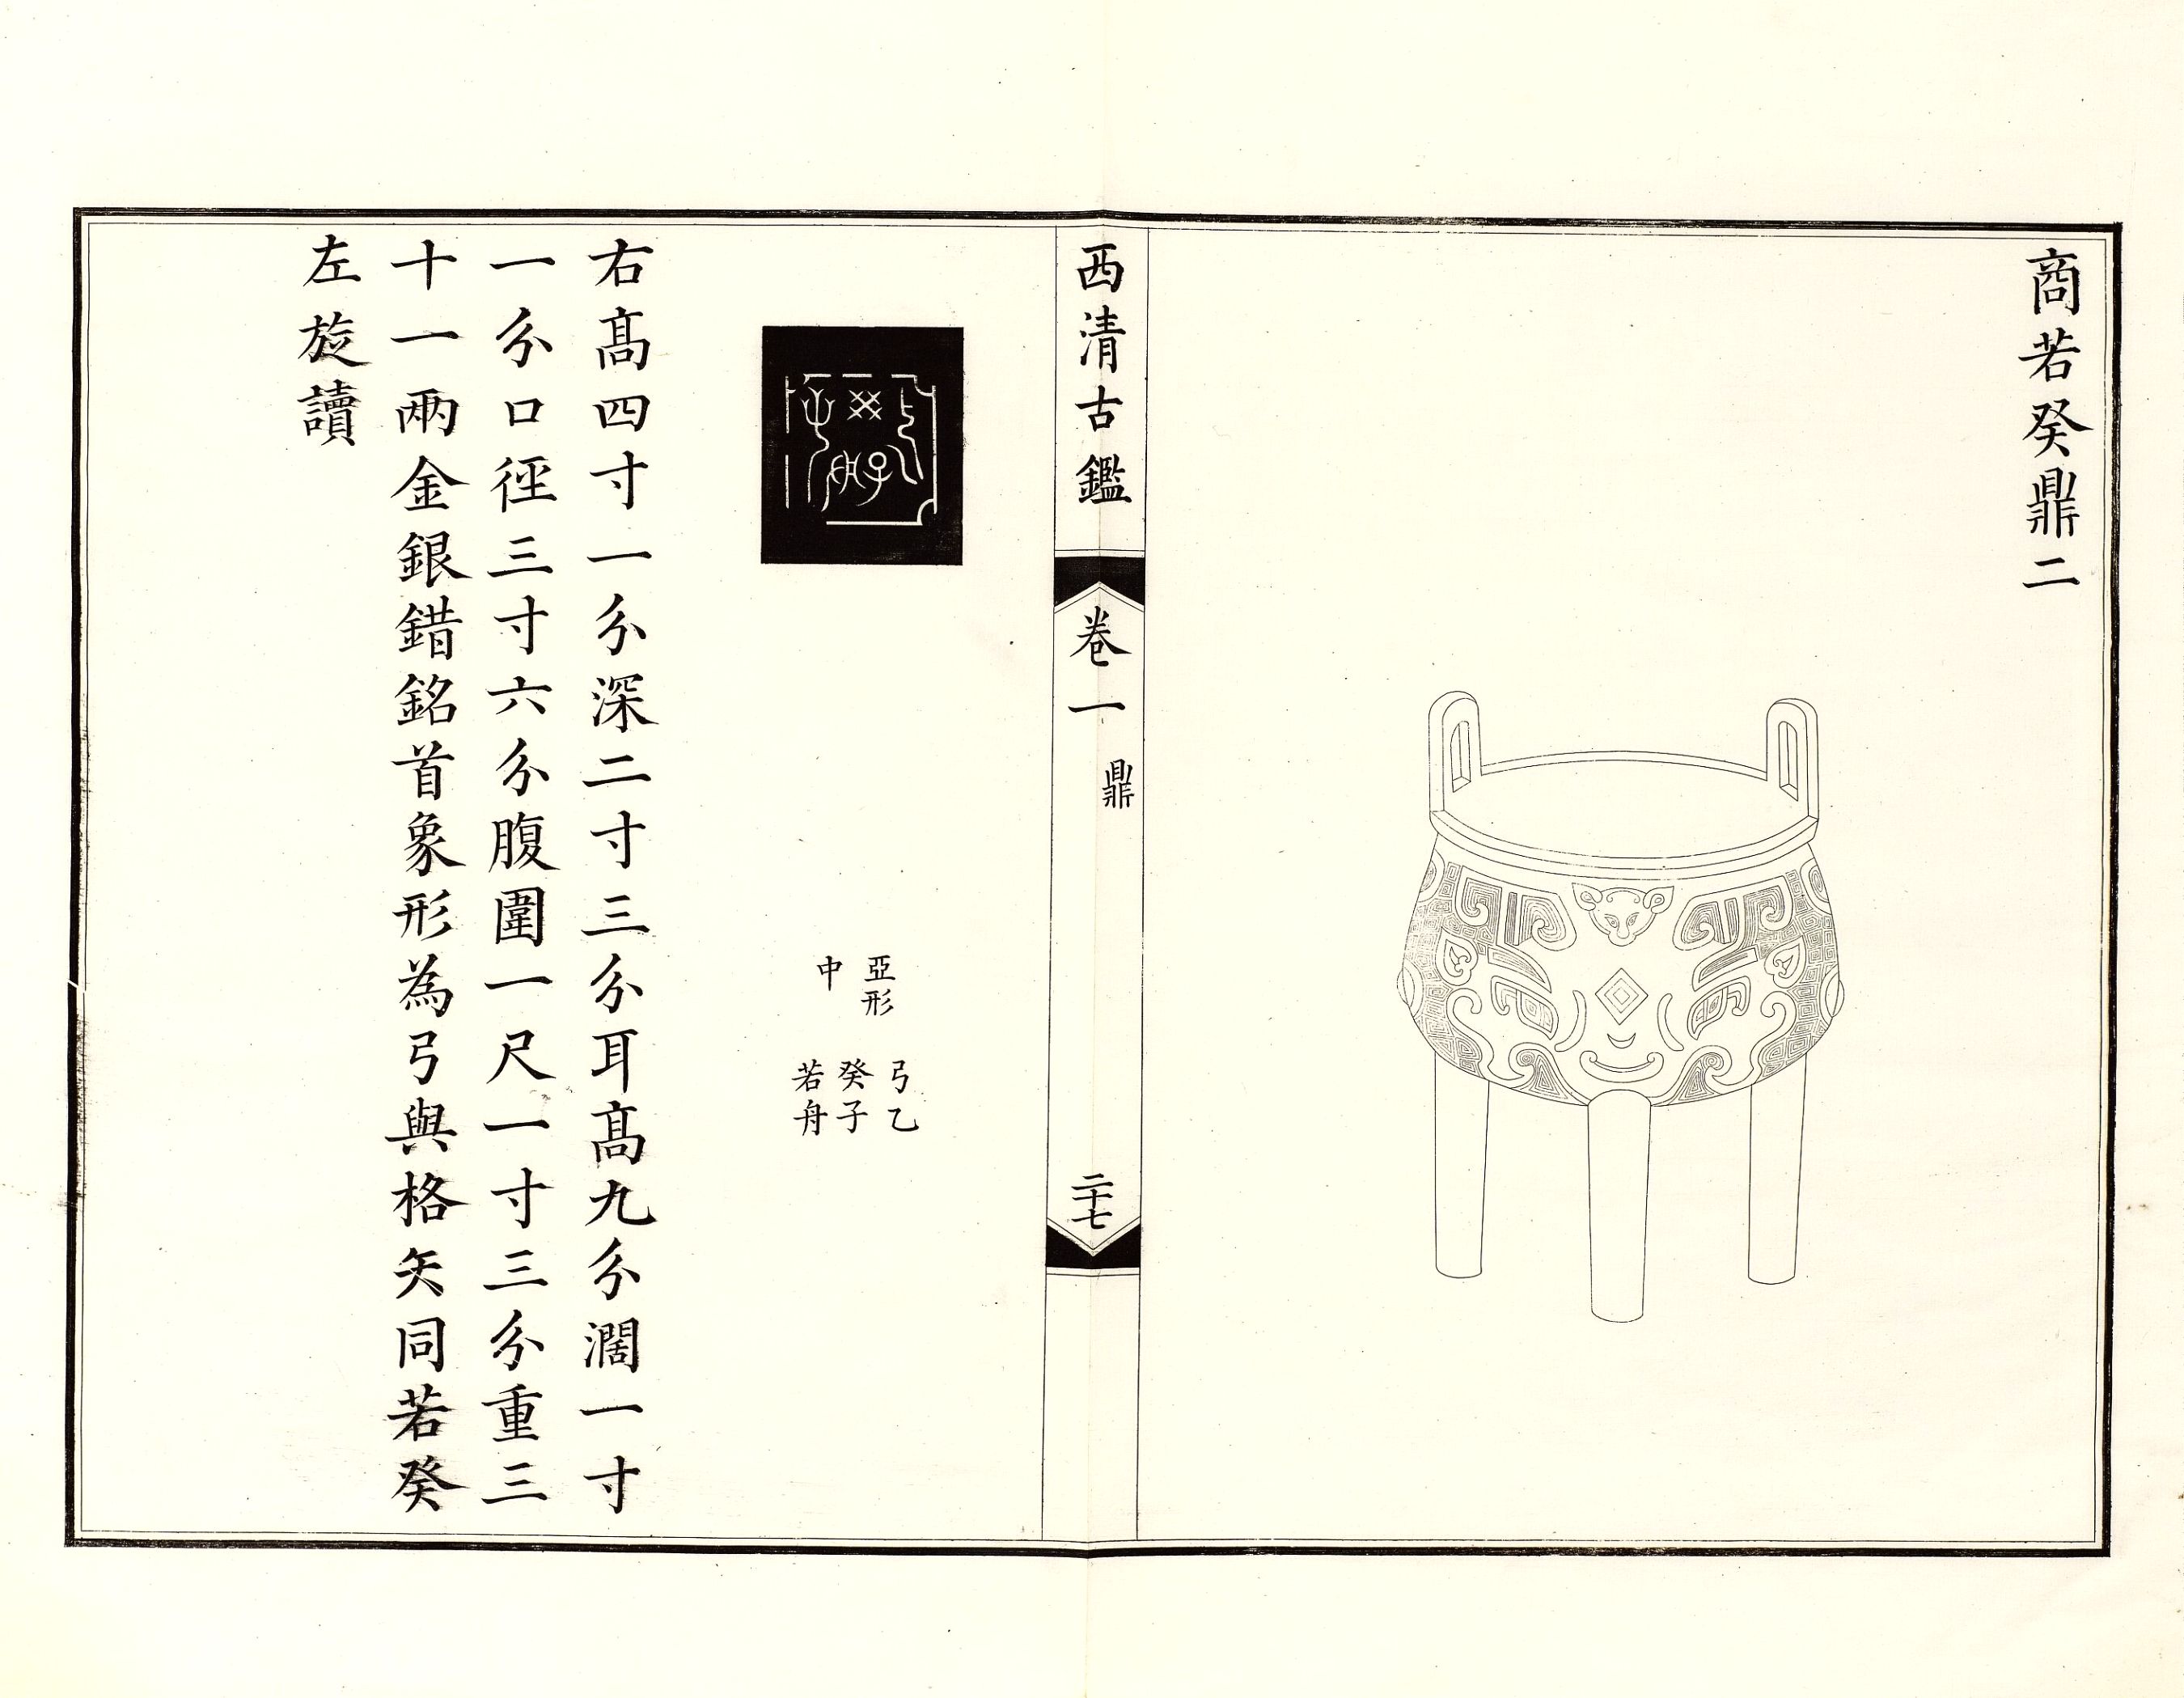 商若癸鼎二
西清古鑑
卷一
鼎
二十七
亞形
中
弓乙
癸子
若舟
右髙四寸一分深二寸三分耳髙九分濶一寸
一分口徑三寸六分腹圍一尺一寸三分重三
十一兩金銀錯銘首象形為弓與格矢同若癸
左旋讀